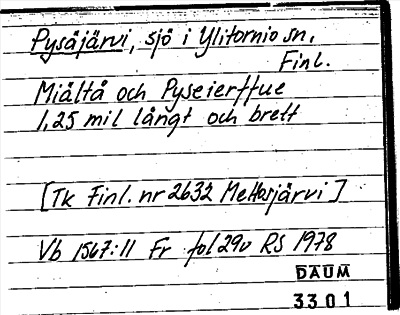 Pysäjärvi, sjö i Ylitornio sn,
Finl.
Miältå och Pyseierffue
1,25 mil långt och brett
[Tk Finl. nr 2632 Meltosjärvi]
Vb 1567:11 Fr fol 29v RS 1978
DAUM
3301